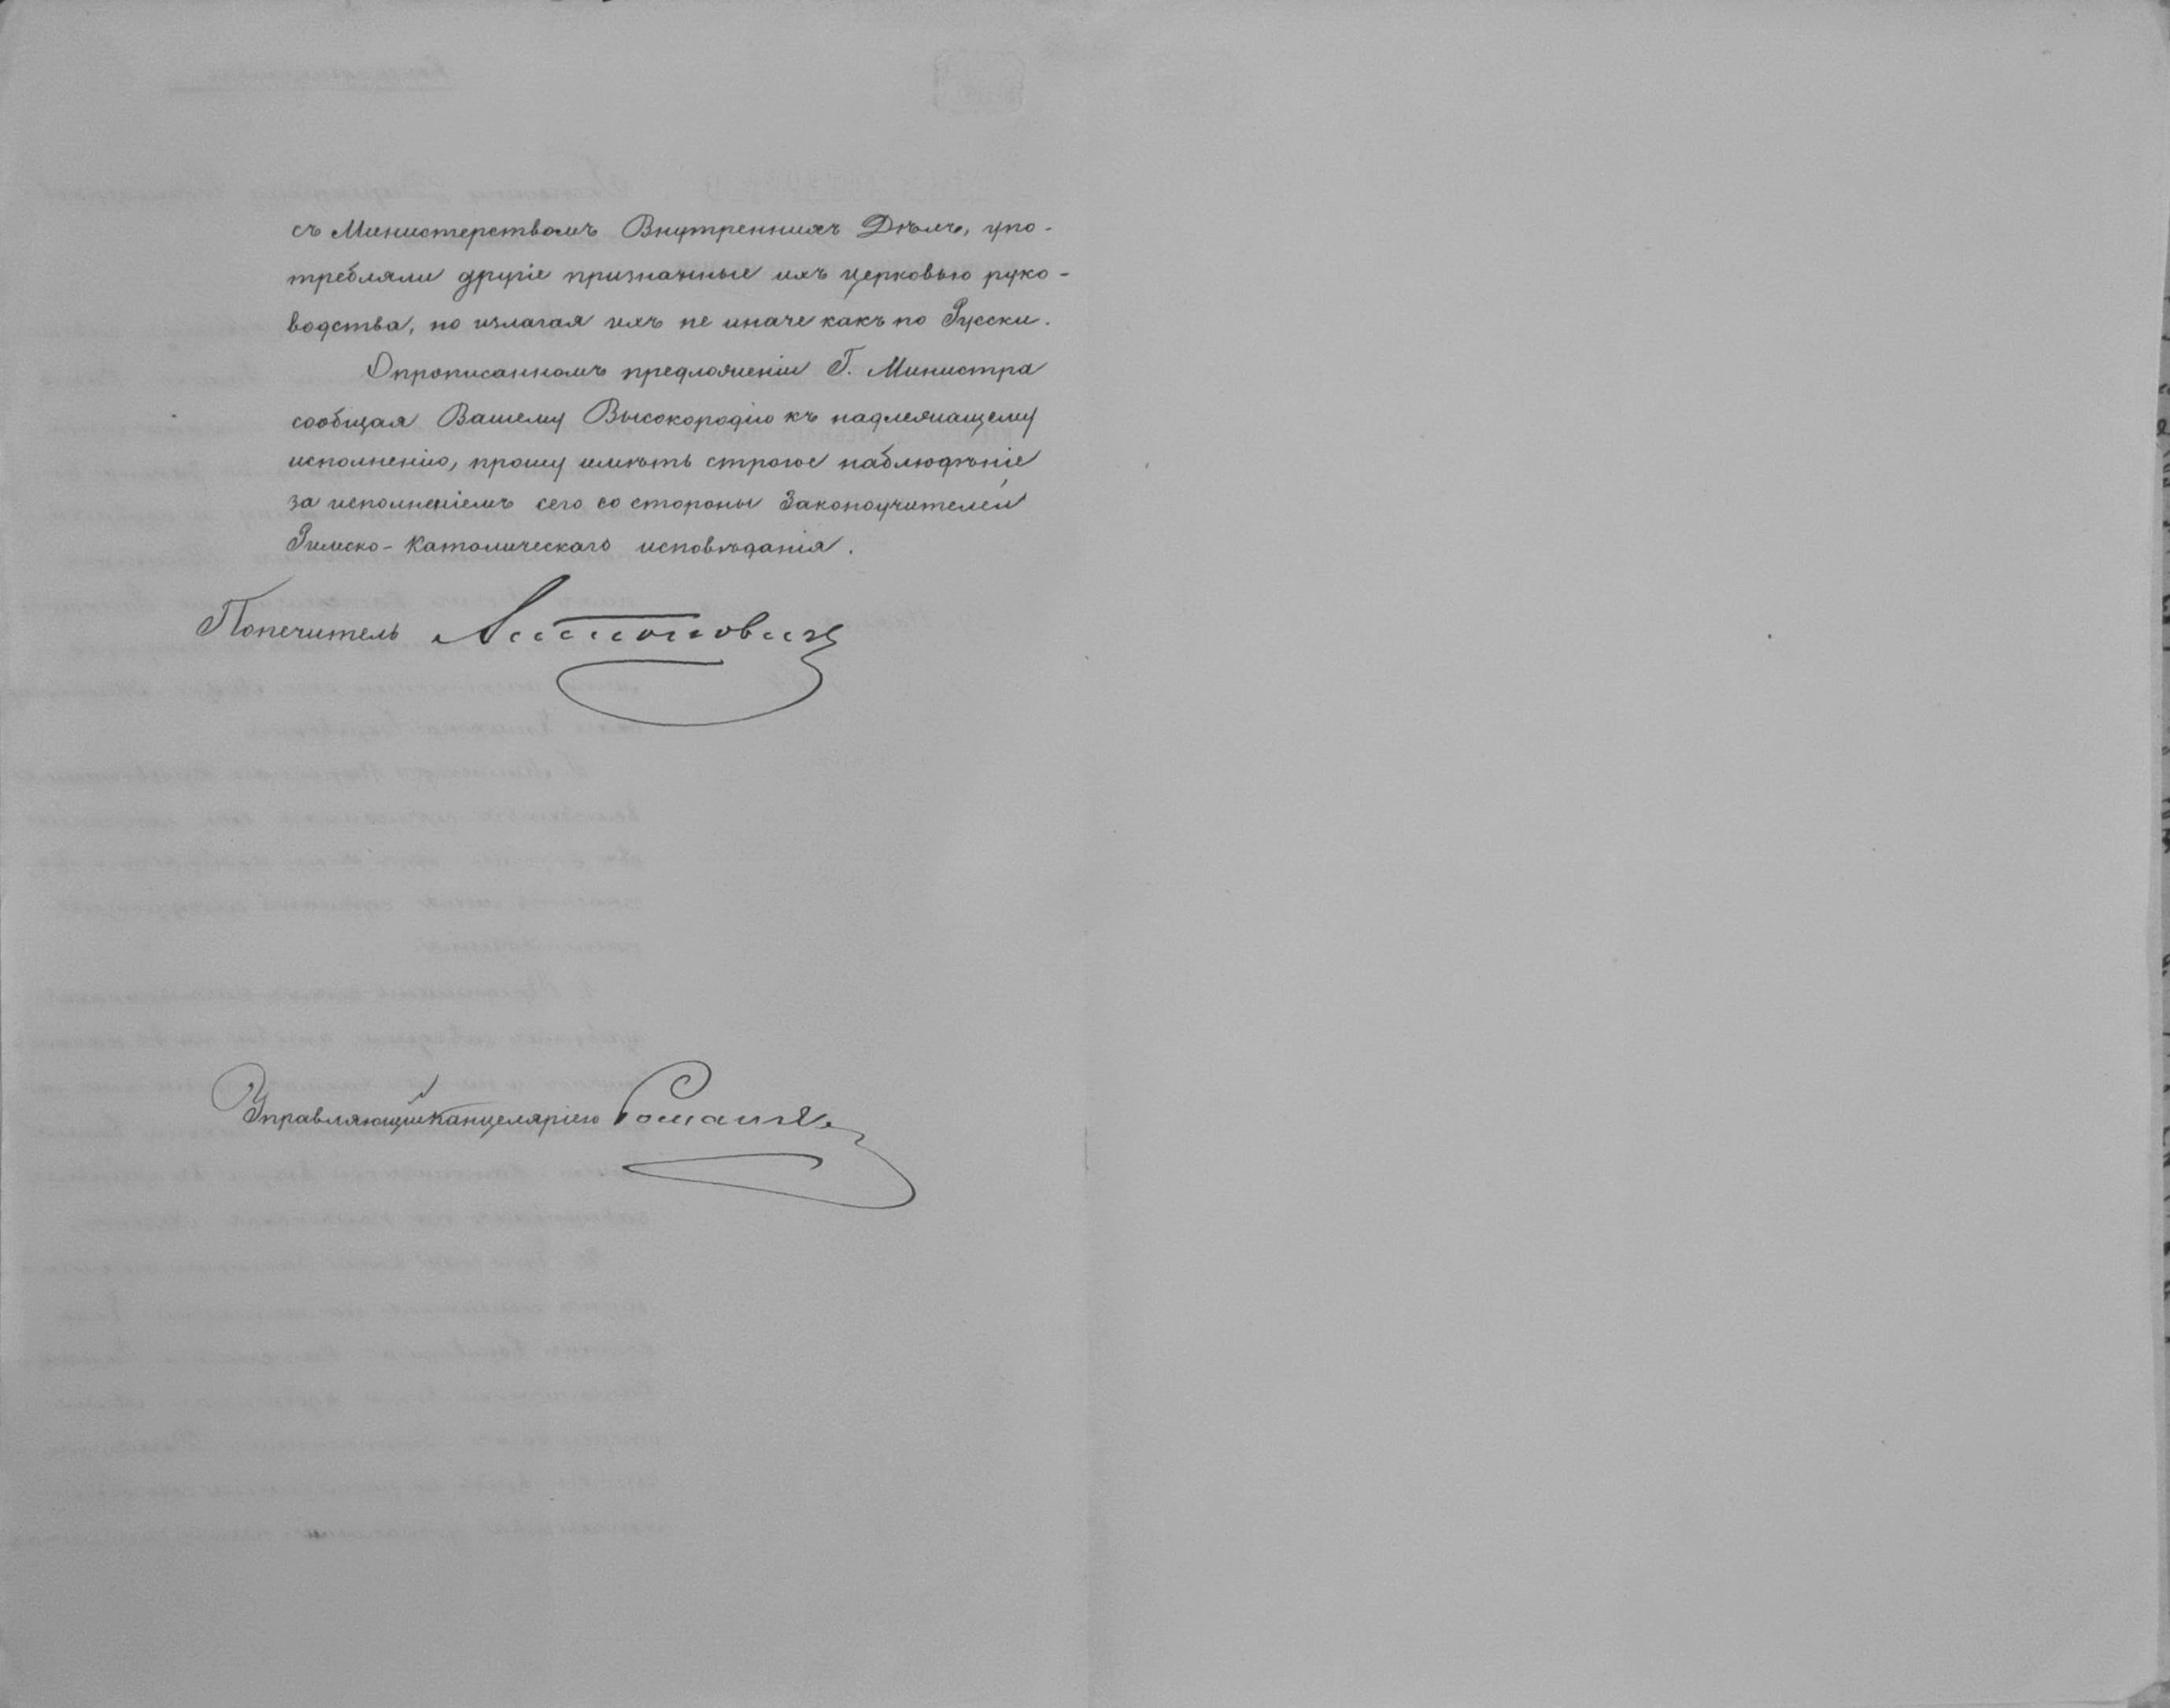 съ Министерствомъ Внутреннихъ Дѣлъ, упо-
требляли другіе признанные ихъ церковью руко-
водства, но излагая ихъ не иначе какъ по Русски.
О прописанномъ предложеніи Г. Министра
сообщая Вашему Высокородію къ надлежащему
исполненію, прошу имѣть строгое наблюдѣніе
за исполненіемъ сего со стороны Законоучителей
Римско-Католическаго исповѣданія.
Попечитель Антоновичъ
Управляющій Канцеляріею